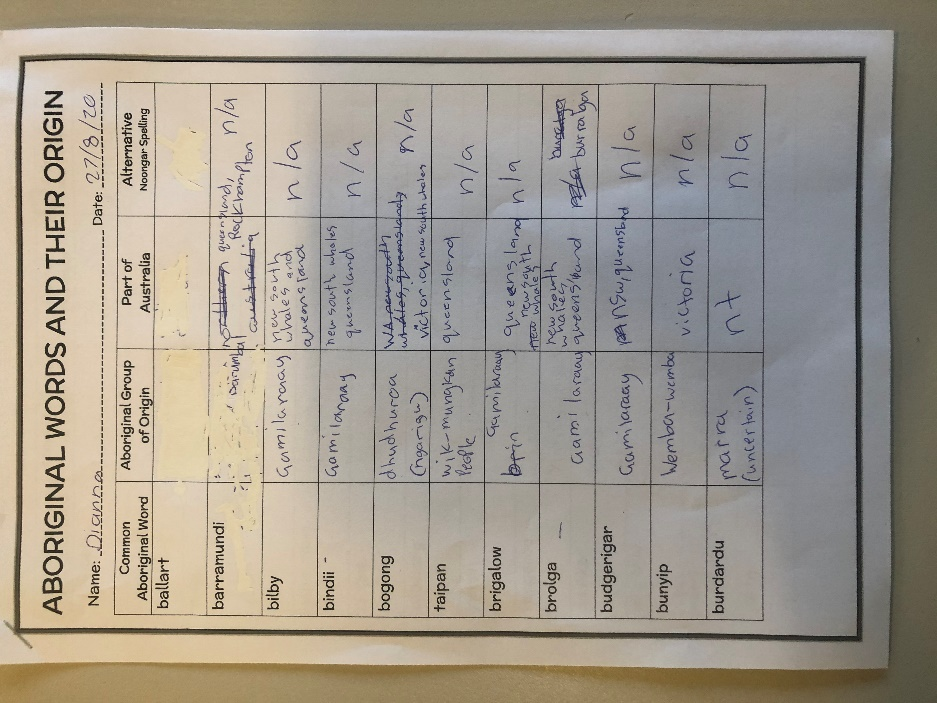 ABORIGINAL WORDS AND THEIR ORIGIN
Name: Dianna Date: 27/8/20
Common
Aboriginal Word
Aboriginal Group
of Origin
Part of
Australia
Alternative
Noongar Spelling
ballart
barramundi
queensland,
Rockhampton
n/a
bilby
Gamilaraay
new south
whales and
queensland
n/a
bindii -
Gamilaraay
new south whales
queensland
n/a
bogong
dhudhuroa
(ngarigu)
victoria, new south whales
n/a
taipan
wik-mungkan
People
queensland
n/a
brigalow
Gamilaraay
queensland
new south
whales
n/a
brolga
—
Gamilaraay
new south
whales,
queensland
burralga
budgerigar
Gamilaraay
nsw, queensland
n/a
bunyip
Wemba-wemba
victoria
n/a
burdardu
marra
(uncertain)
nt
n/a